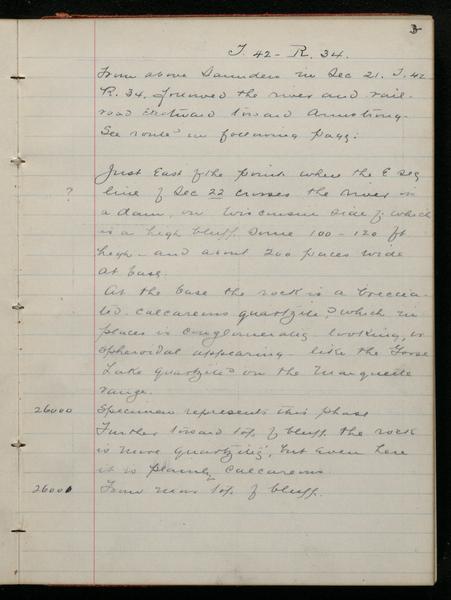 3
T. 42 - R. 34.
From above Saunders in Sec 21. T. 42
R. 34, followed the river and rail-
road Eastward toward Armstrong.
See route in following page.
Just East of the point where the E Seg
? line of Sec 22 crosses the river is
a dam, on Wisconsin side of which
is a high bluff some 100 - 120 ft
high - and about 200 paces wide
at base.
At the base the rock is a breccia-
ted calcareous quartzite, which in
places is conglomeratic looking, or
spheroidal appearing like the Goose
Lake quartzite on the Marquette
range.
26000 Specimen represents this phase
Further toward top of bluff the rock
is more quartzitic, but even here
it is plainly calcareous
26001 From near top of bluff.